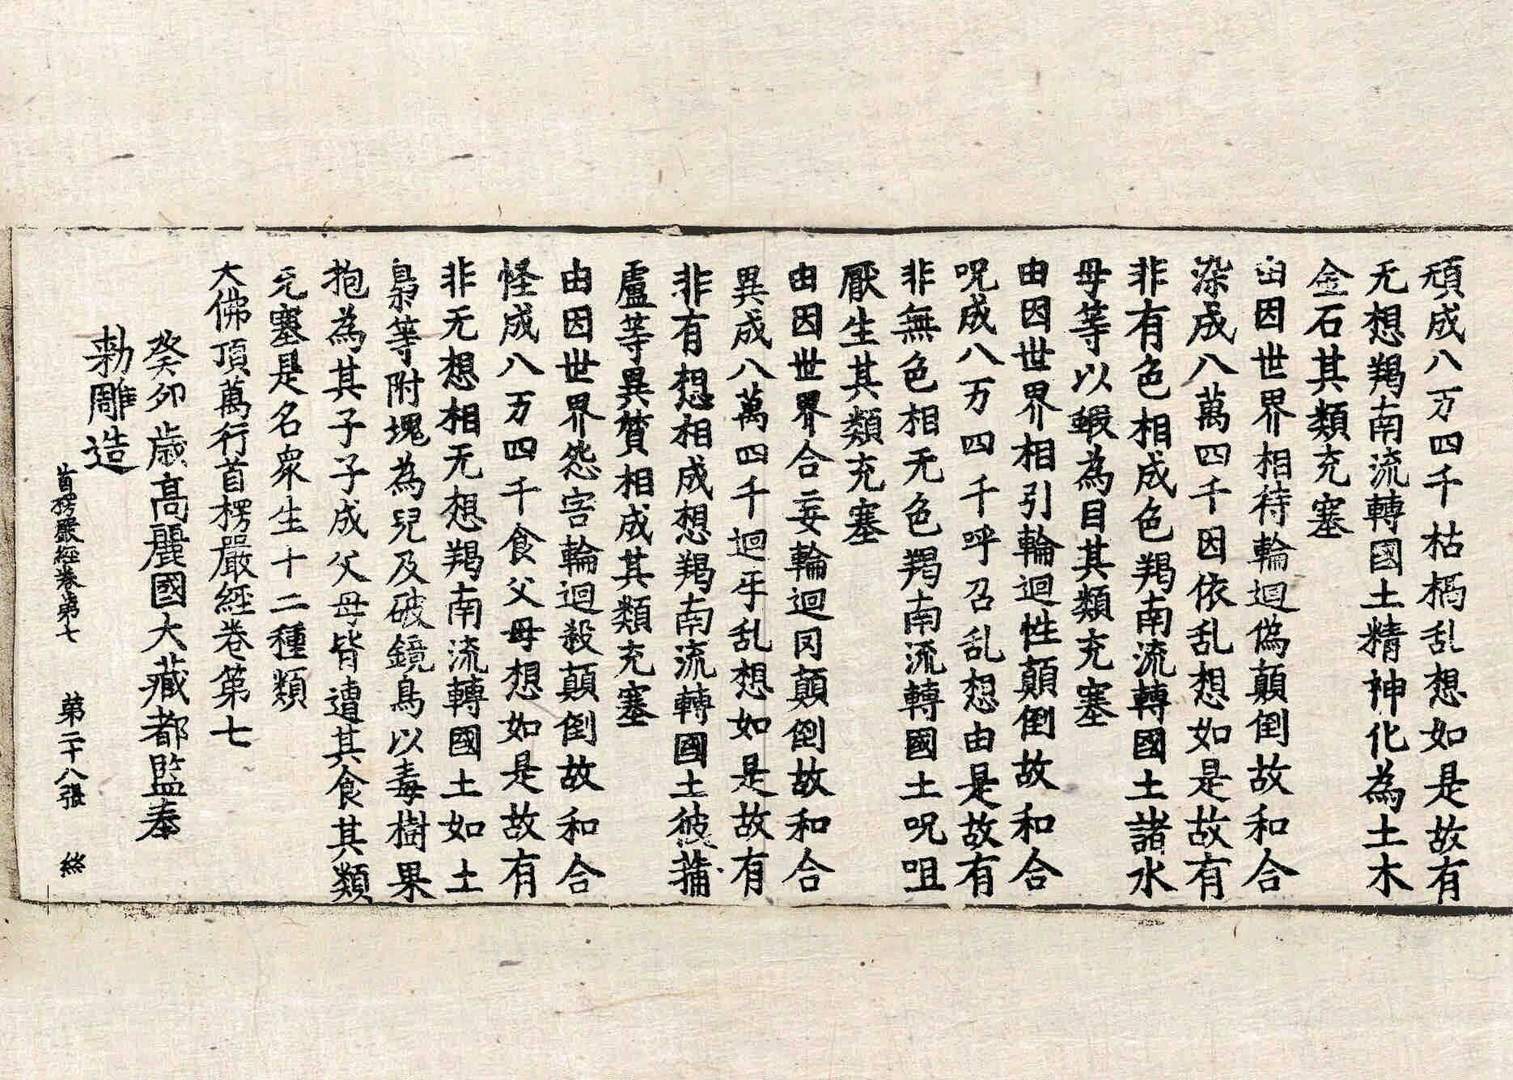 頑成八万四千枯槁乱想如是故有
无想羯南流轉國土精神化為土木
金石其類充塞
由因世界相待輪迴偽顛倒故和合
染成八萬四千因依乱想如是故有
非有色相成色羯南流轉國土諸水
母等以蝦為目其類充塞
由因世界相引輪迴性顛倒故和合
呪成八万四千呼召乱想由是故有
非無色相无色羯南流轉國土呪咀
厭生其類充塞
由因世界合妄輪迴罔顛倒故和合
異成八萬四千迴乎乱想如是故有
非有想相成想羯南流轉國土彼蒱
盧等異質相成其類充塞
由因世界怨害輪迴殺顛倒故和合
怪成八万四千食父母想如是故有
非无想相无想羯南流轉國土如土
梟等附塊為兒及破鏡鳥以毒樹果
抱為其子子成父母皆遭其食其類
充塞是名衆生十二種類
大佛頂萬行首楞嚴經卷第七
癸卯歲高麗國大藏都監奉
勅雕造
首楞嚴經卷第七 第二十八張 終